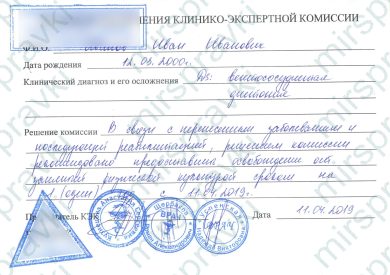 ЕНИЯ КЛИНИКО-ЭКСПЕРТНОЙ КОМИССИИ
Ф.И.О. Иван Иванович
Дата рождения 12.03.2000г.
Клинический диагноз и его осложнения Ds: вегетососудистая
дистония
Решение комиссии В связи с перенесенным заболеванием и
последующей реабилитацией, решением комиссии
рекомендовано предоставить освобождение от
занятий физической культурой сроком на
1 (один) с 11.04.2019г.
КЭК Дата 11.04.2019
ВРАЧ
mirspravki